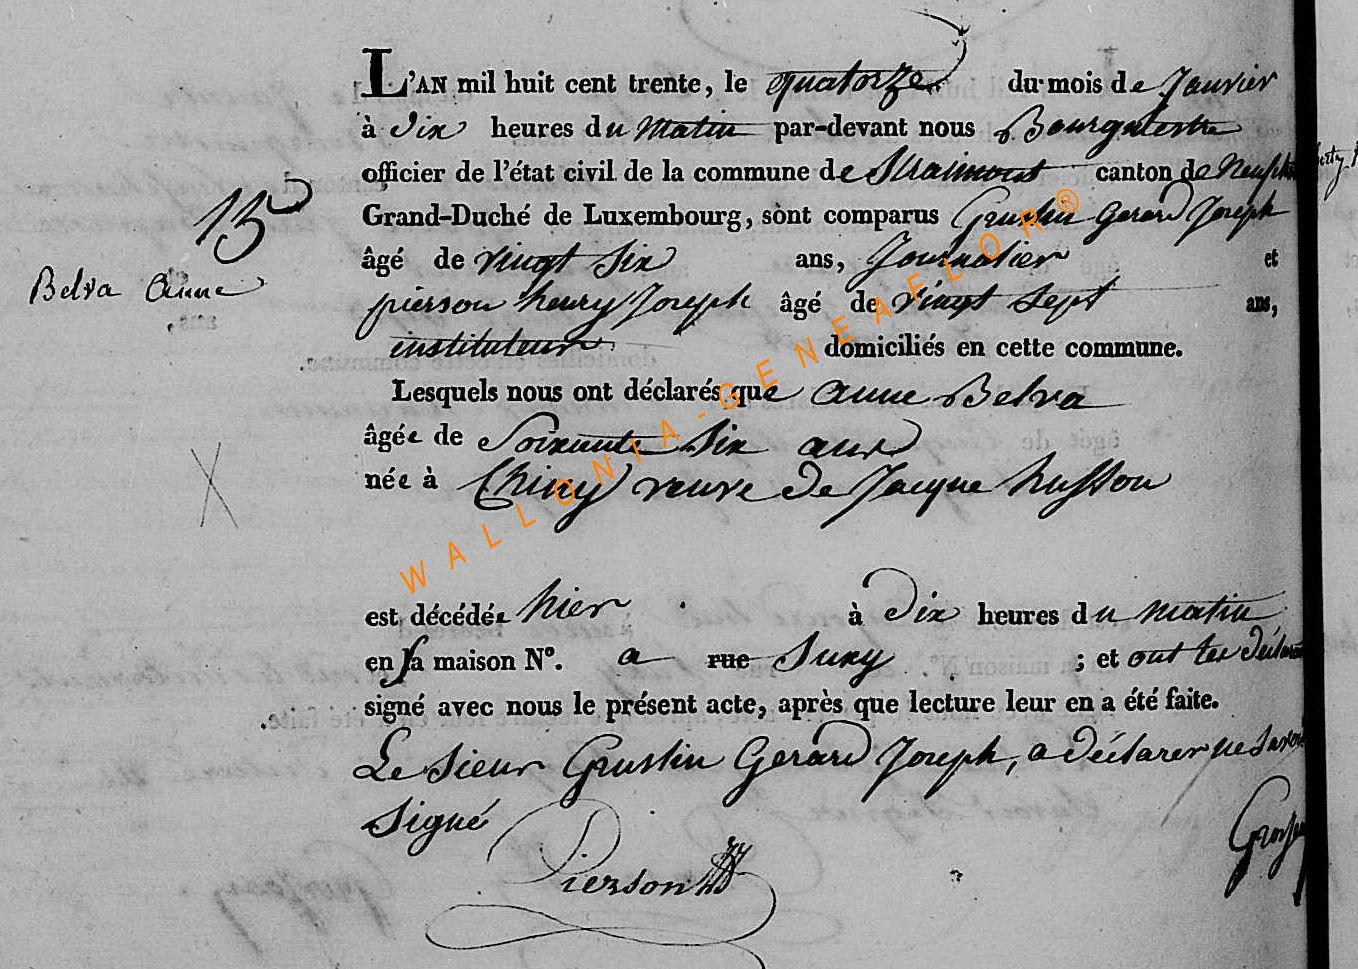 L'AN mil huit cent trente, le quatorze du mois de Janvier
à dix heures du matin par-devant nous Bourgmestre
officier de l'état civil de la commune de Straimont canton de Neufch
Grand-Duché de Luxembourg, sont comparus Grustin Gerard Joseph
15
âgé de vingt six ans, Journalier et
Belva Anne
pierson henry Joseph âgé de vingt sept ans,
instituteur domiciliés en cette commune.
Lesquels nous ont déclarés que Anne Belva
âgée de Soixante Six ans
née à Chiny veuve de Jacque husson
WALLONIA-GENEAELOR®
est décédée hier à dix heures du matin
en la maison N°. a rue Suxy ; et ont les déclarants
signé avec nous le présent acte, après que lecture leur en a été faite.
Le Sieur Grustin Gerard Joseph, a déclarer ne Savoir
Signé
Pierson